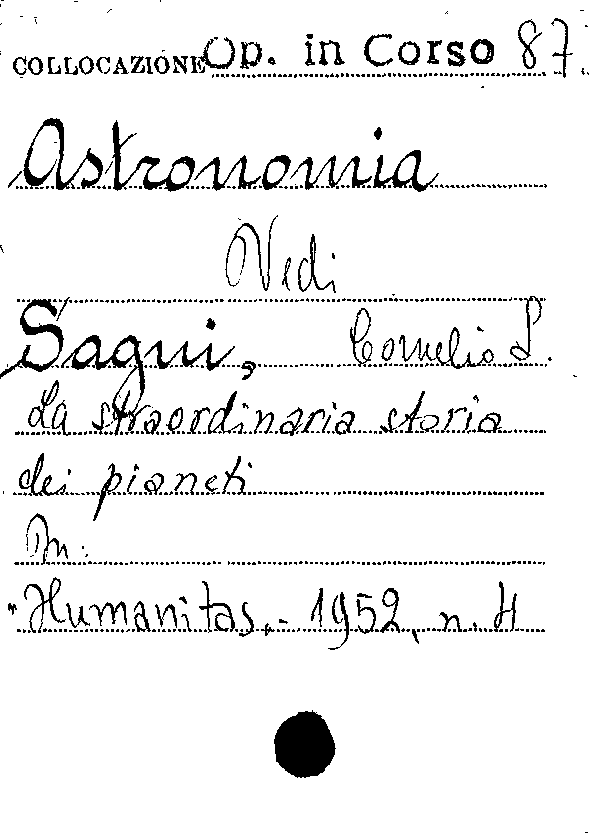 COLLOCAZIONE Op. in Corso 87.
Astronomia
Vedi
Sagui, Cornelio L.
La straordinaria storia
dei pianeti
In:
"Humanitas„- 1952, n. 4